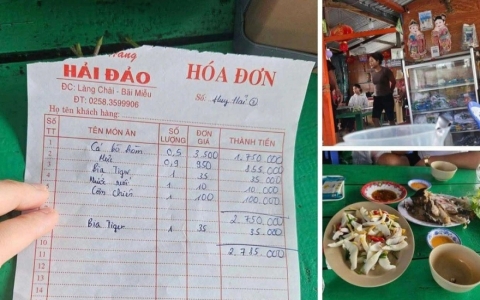 Hàng
HẢI ĐẢO
HÓA ĐƠN
ĐC: Làng Chài - Bãi Miếu
ĐT: 0258.3599906
Số:
Họ tên khách hàng:
Số TT TÊN MÓN ĂN SỐ LƯỢNG ĐƠN GIÁ THÀNH TIỀN
1 Cá bò hòm 0,5 3.500 1.750.000
2 Mực 0,9 950 855.000
3 Bia Tiger 1 35 35.000
4 Nước suối 1 10 10.000
5 Cơm chiên 1 100 100.000
2.750.000
Bia Tiger 1 35 35.000
10
11 2.785.000
12
13
14